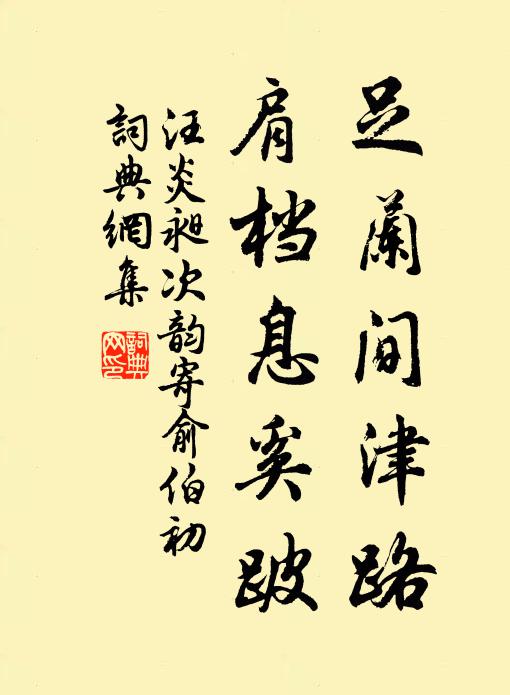 足蘭間津路
肩档息奚跛
汪炎昶次韵寄俞伯初
詞典網集
詞典网印